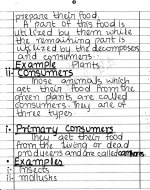 prepare their food.
A part of this food is
utilized by them while
the remaining part is
utilized by the decomposers
and consumers.
Example Plants
ii- Consumers
Those animals which
get their food from the
green plants are called
consumers. They are of
three types.
i- Primary Consumers
They get their food
from the living or dead
producers and are called
• Examples
i- insects
ii- mollusks